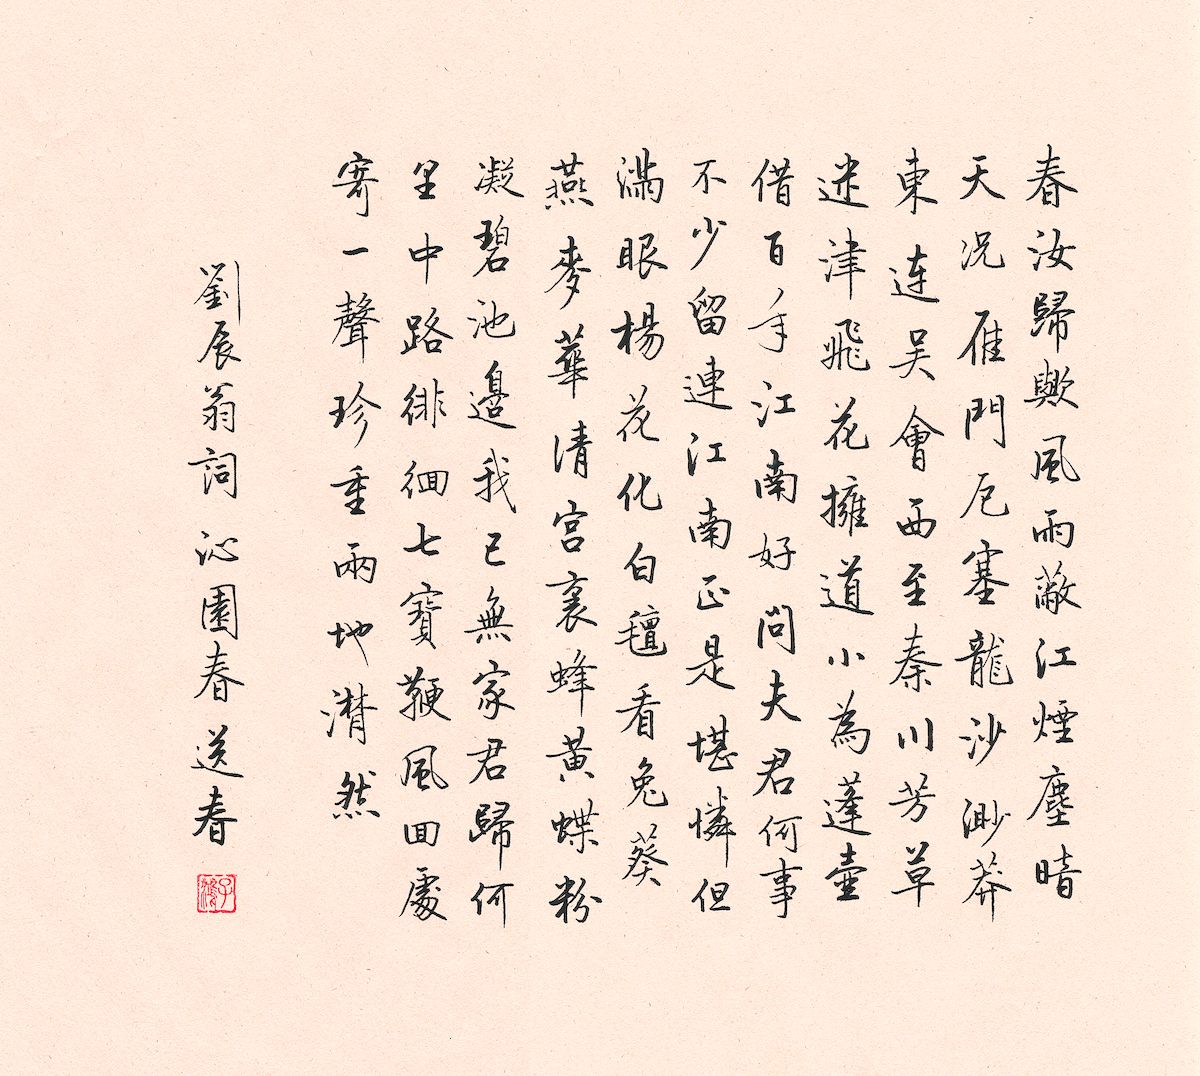 春汝歸歟風雨蔽江煙塵暗
天況雁門厄塞龍沙渺莽
東連吳會西至秦川芳草
迷津飛花擁道小為蓬壺
借百年江南好問夫君何事
不少留連江南正是堪憐但
滿眼楊花化白氊看兔葵
燕麥華清宮裏蜂黃蝶粉
凝碧池邊我已無家君歸何
里中路徘徊七寶鞭風回處
寄一聲珍重兩地潸然
劉辰翁詞沁園春送春